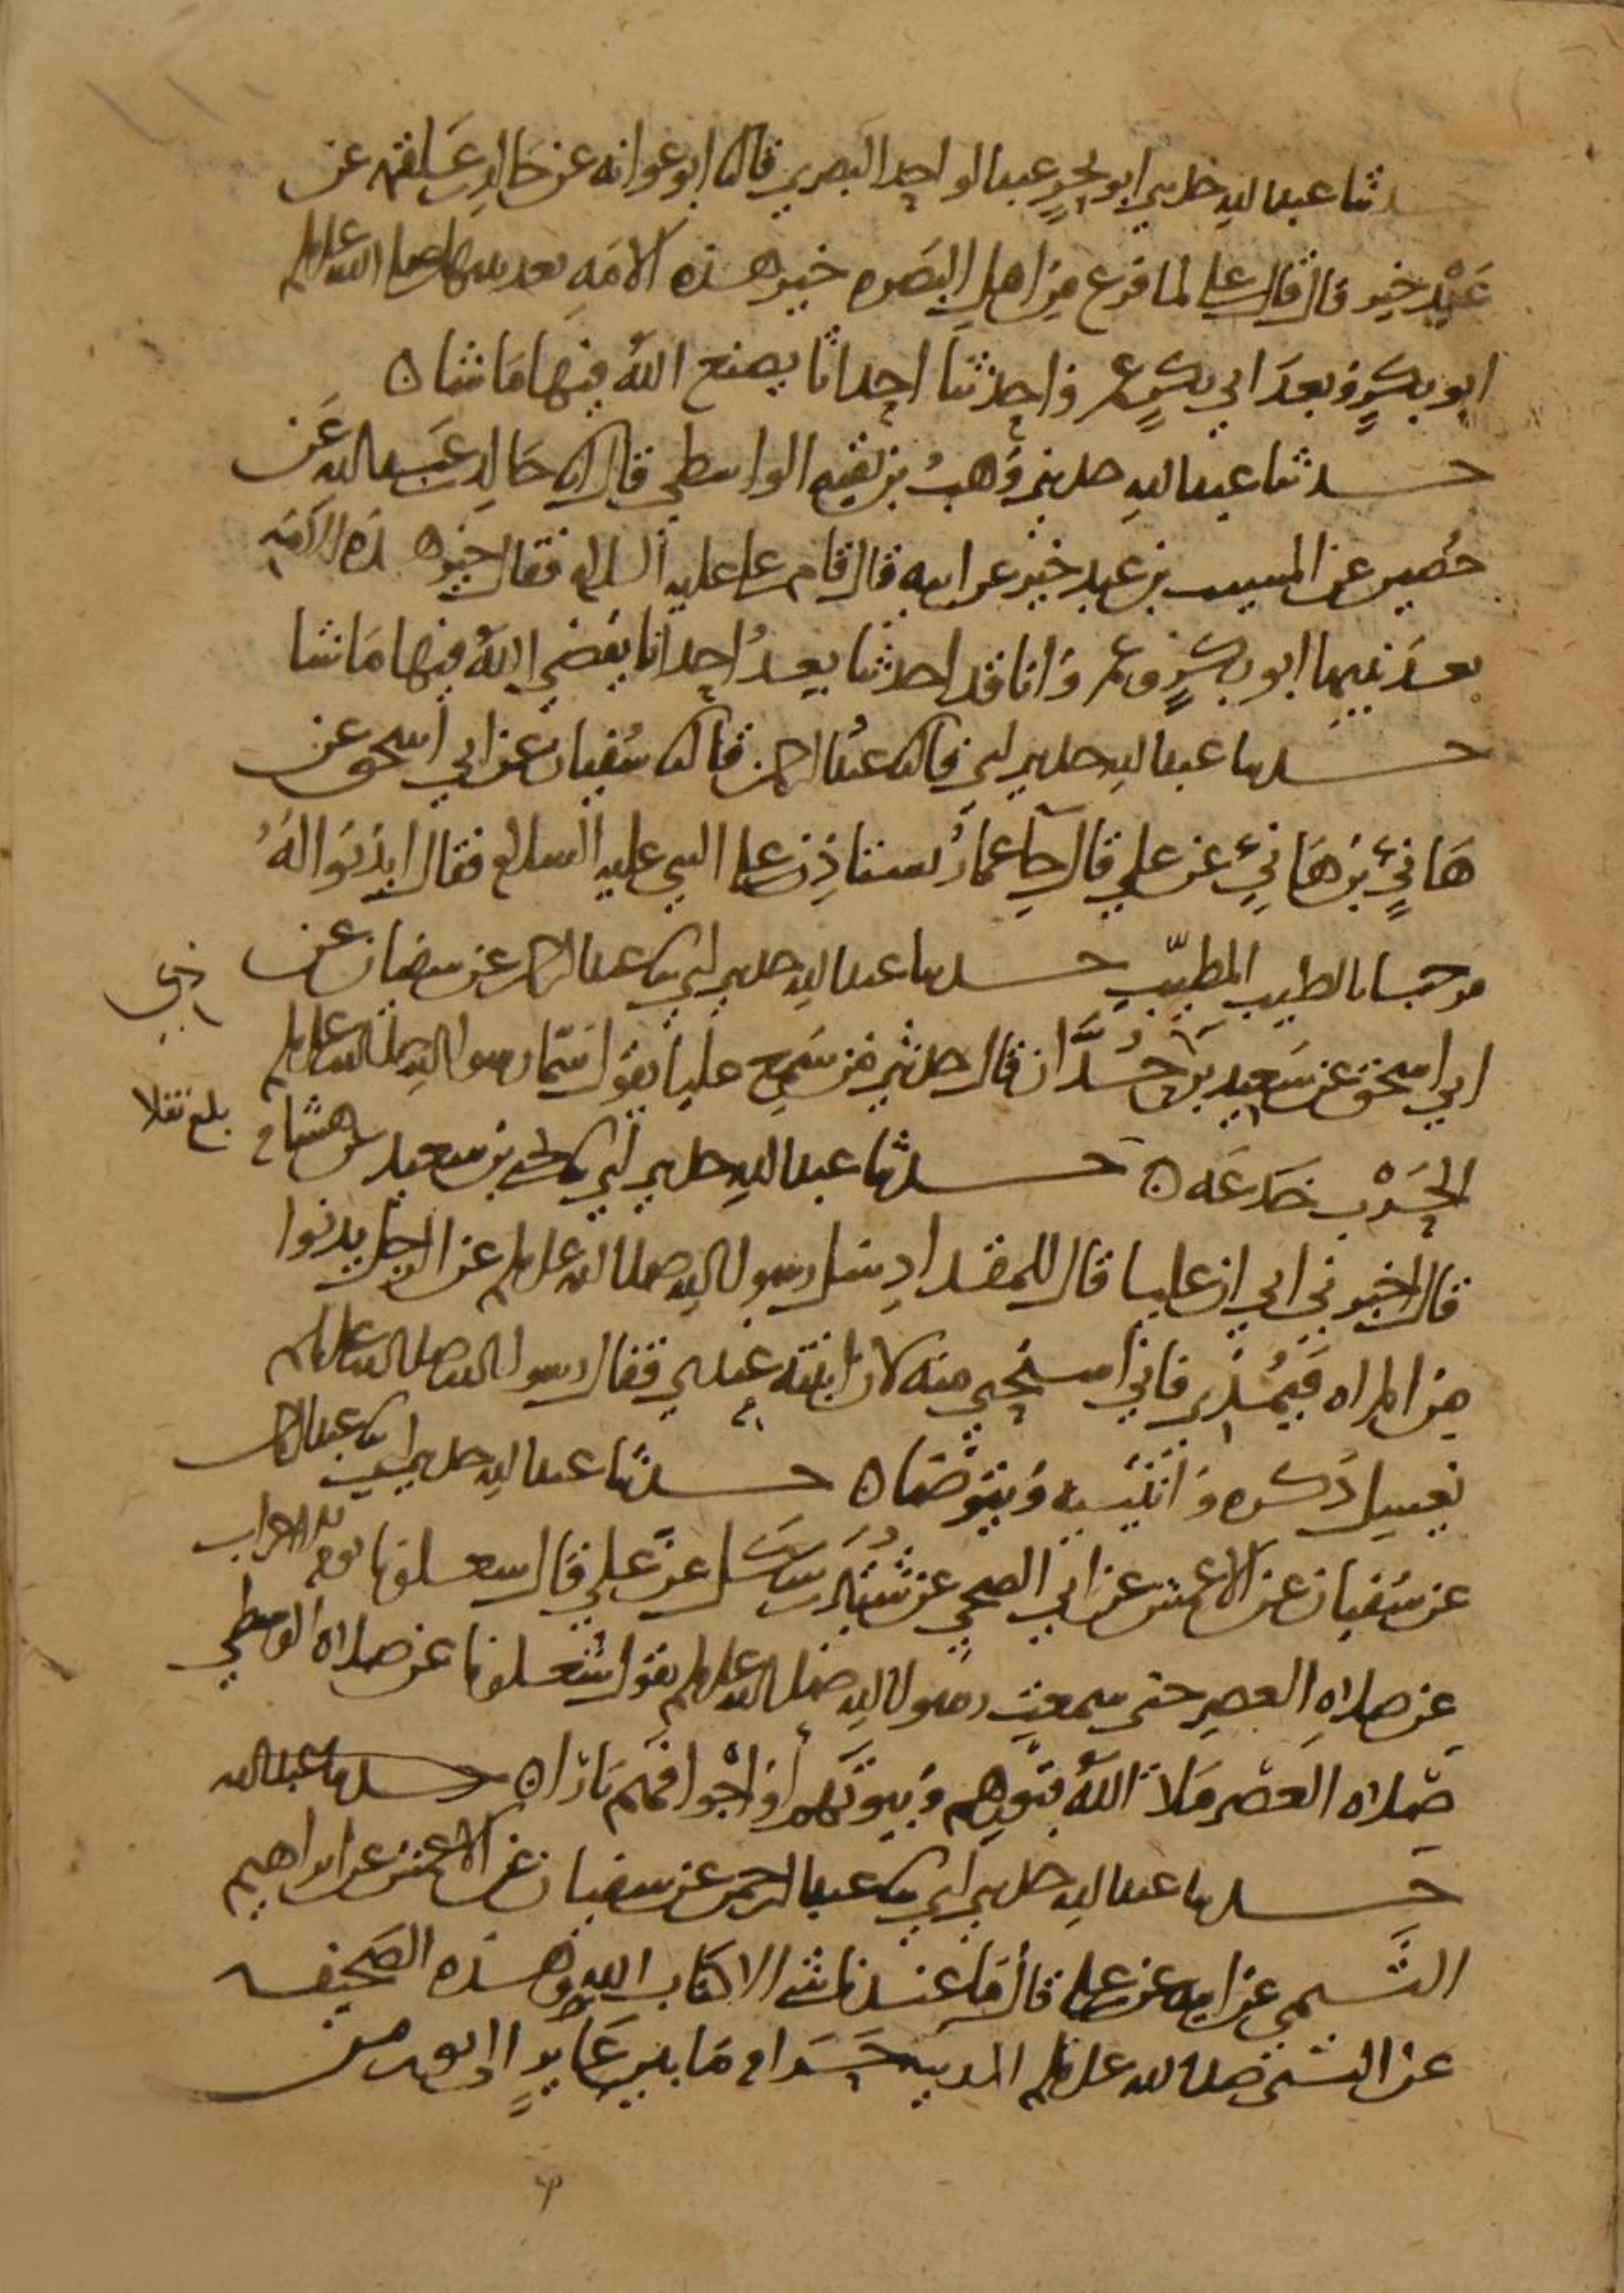 حدثنا عبد الله حدثني ابو بحر عبد الواحد البصري قال نا ابو عوانه عن خالد بن علقمه عن
عبد خير قال قال علي لما فرغ من اهل البصره خير هذه الامه بعد نبيها صلى الله عليه وسلم
ابو بكر وبعد ابي بكر عمر واحدثنا احداثا يصنع الله فيها ما شا ه
حدثنا عبد الله حدثني وهب بن بقيه الواسطي قال انا خالد بن عبد الله عن
حصين عن المسيب بن عبد خير عن ابيه قال قام علي عليه السلام فقال خير هذه الامه
بعد نبيها ابو بكر وعمر وانا قد احدثنا بعد احداثا يقضي الله فيها ما شا
حدثنا عبد الله حدثني ابي قال نا عبد الرحمن قال نا سفيان عن ابي اسحق عن
هانئ بن هانئ عن علي قال جا عمار يستاذن على النبي عليه السلام فقال ايذنوا له
مرحبا بالطيب المطيب حدثنا عبد الله حدثني ابي نا عبد الرحمن عن سفيان عن
ابي اسحق عن سعيد بن ذي حدان قال حدثني من سمع عليا يقول سمى رسول الله صلى الله عليه وسلم
الحرب خدعه ه حدثنا عبد الله حدثني ابي نا يحيى بن سعيد عن هشام
بلغ نقلا
قال اخبرني ابي ان عليا قال للمقداد سل رسول الله صلى الله عليه وسلم عن الرجل يدنوا
من المراه فيمذي فاني استحيي منه لان ابنته عندي فقال رسول الله صلى الله عليه وسلم
يغسل ذكره وانثييه ويتوضا ه حدثنا عبد الله حدثني ابي نا عبد الرحمن
عن سفيان عن الاعمش عن ابي الضحى عن شتير بن شكل عن علي قال شغلونا يوم الاحزاب
عن صلاه العصر حتى سمعت رسول الله صلى الله عليه وسلم يقول شغلونا عن صلاه الوسطى
صلاه العصر ملا الله قبورهم وبيوتهم او اجوافهم نارا ه حدثنا عبد الله
حدثنا عبد الله حدثني ابي نا عبد الرحمن عن سفيان عن الاعمش عن ابراهيم
التيمي عن ابيه عن علي قال ما عندنا شي الا كتاب الله وهذه الصحيفه
عن النبي صلى الله عليه وسلم المدينه حرام ما بين عاير الى ثور من